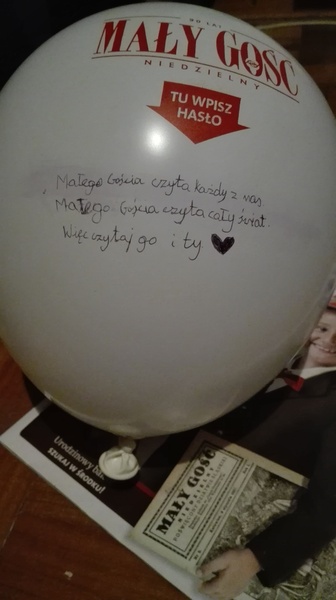 90 LAT
MAŁY GOŚĆ
NIEDZIELNY
TU WPISZ
HASŁO
Małego Gościa czyta każdy z nas.
Małego Gościa czyta cały świat.
Więc czytaj go i ty ♥
Urodzinowy
SZUKAJ W ŚRODKU!
MAŁY GOŚĆ